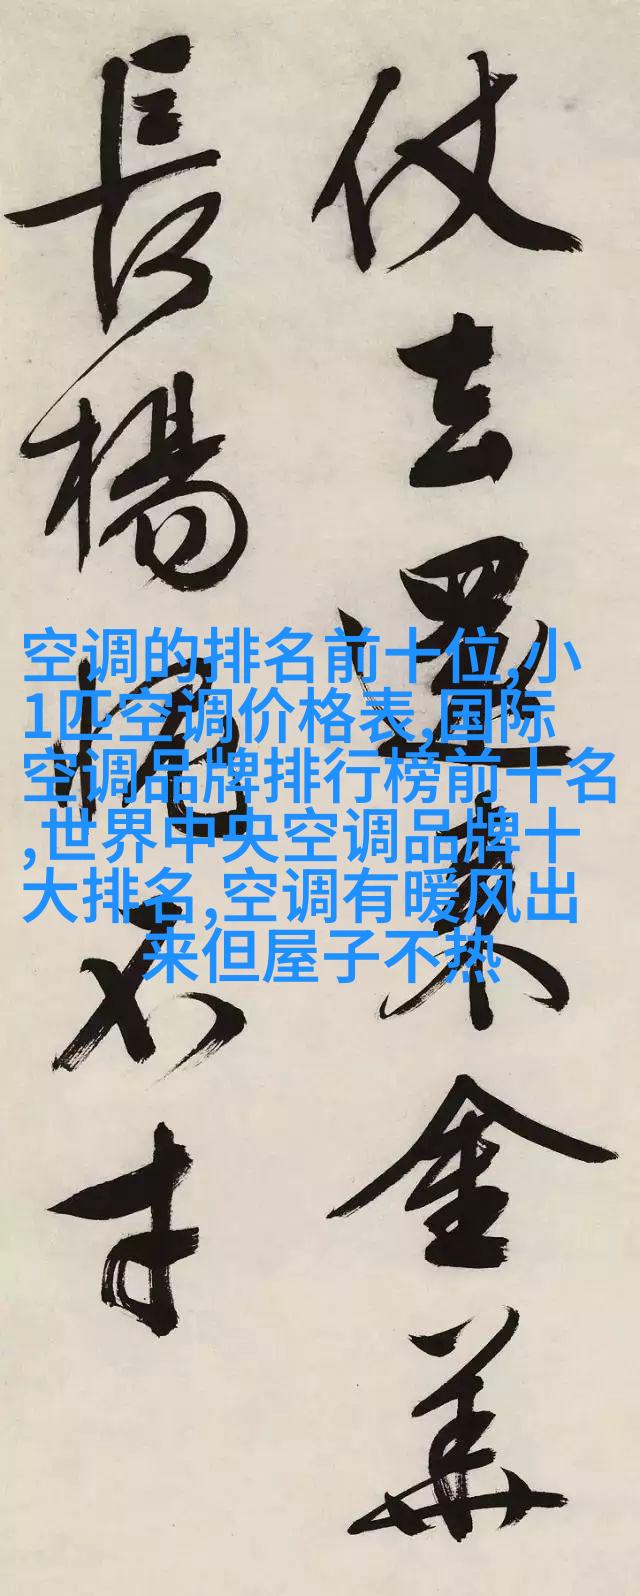 仗去還来金華
長楊不才
空调的排名前十位,小
1匹空调价格表,国际
空调品牌排行榜前十名
,世界中央空调品牌十
大排名,空调有暖风出
来但屋子不热